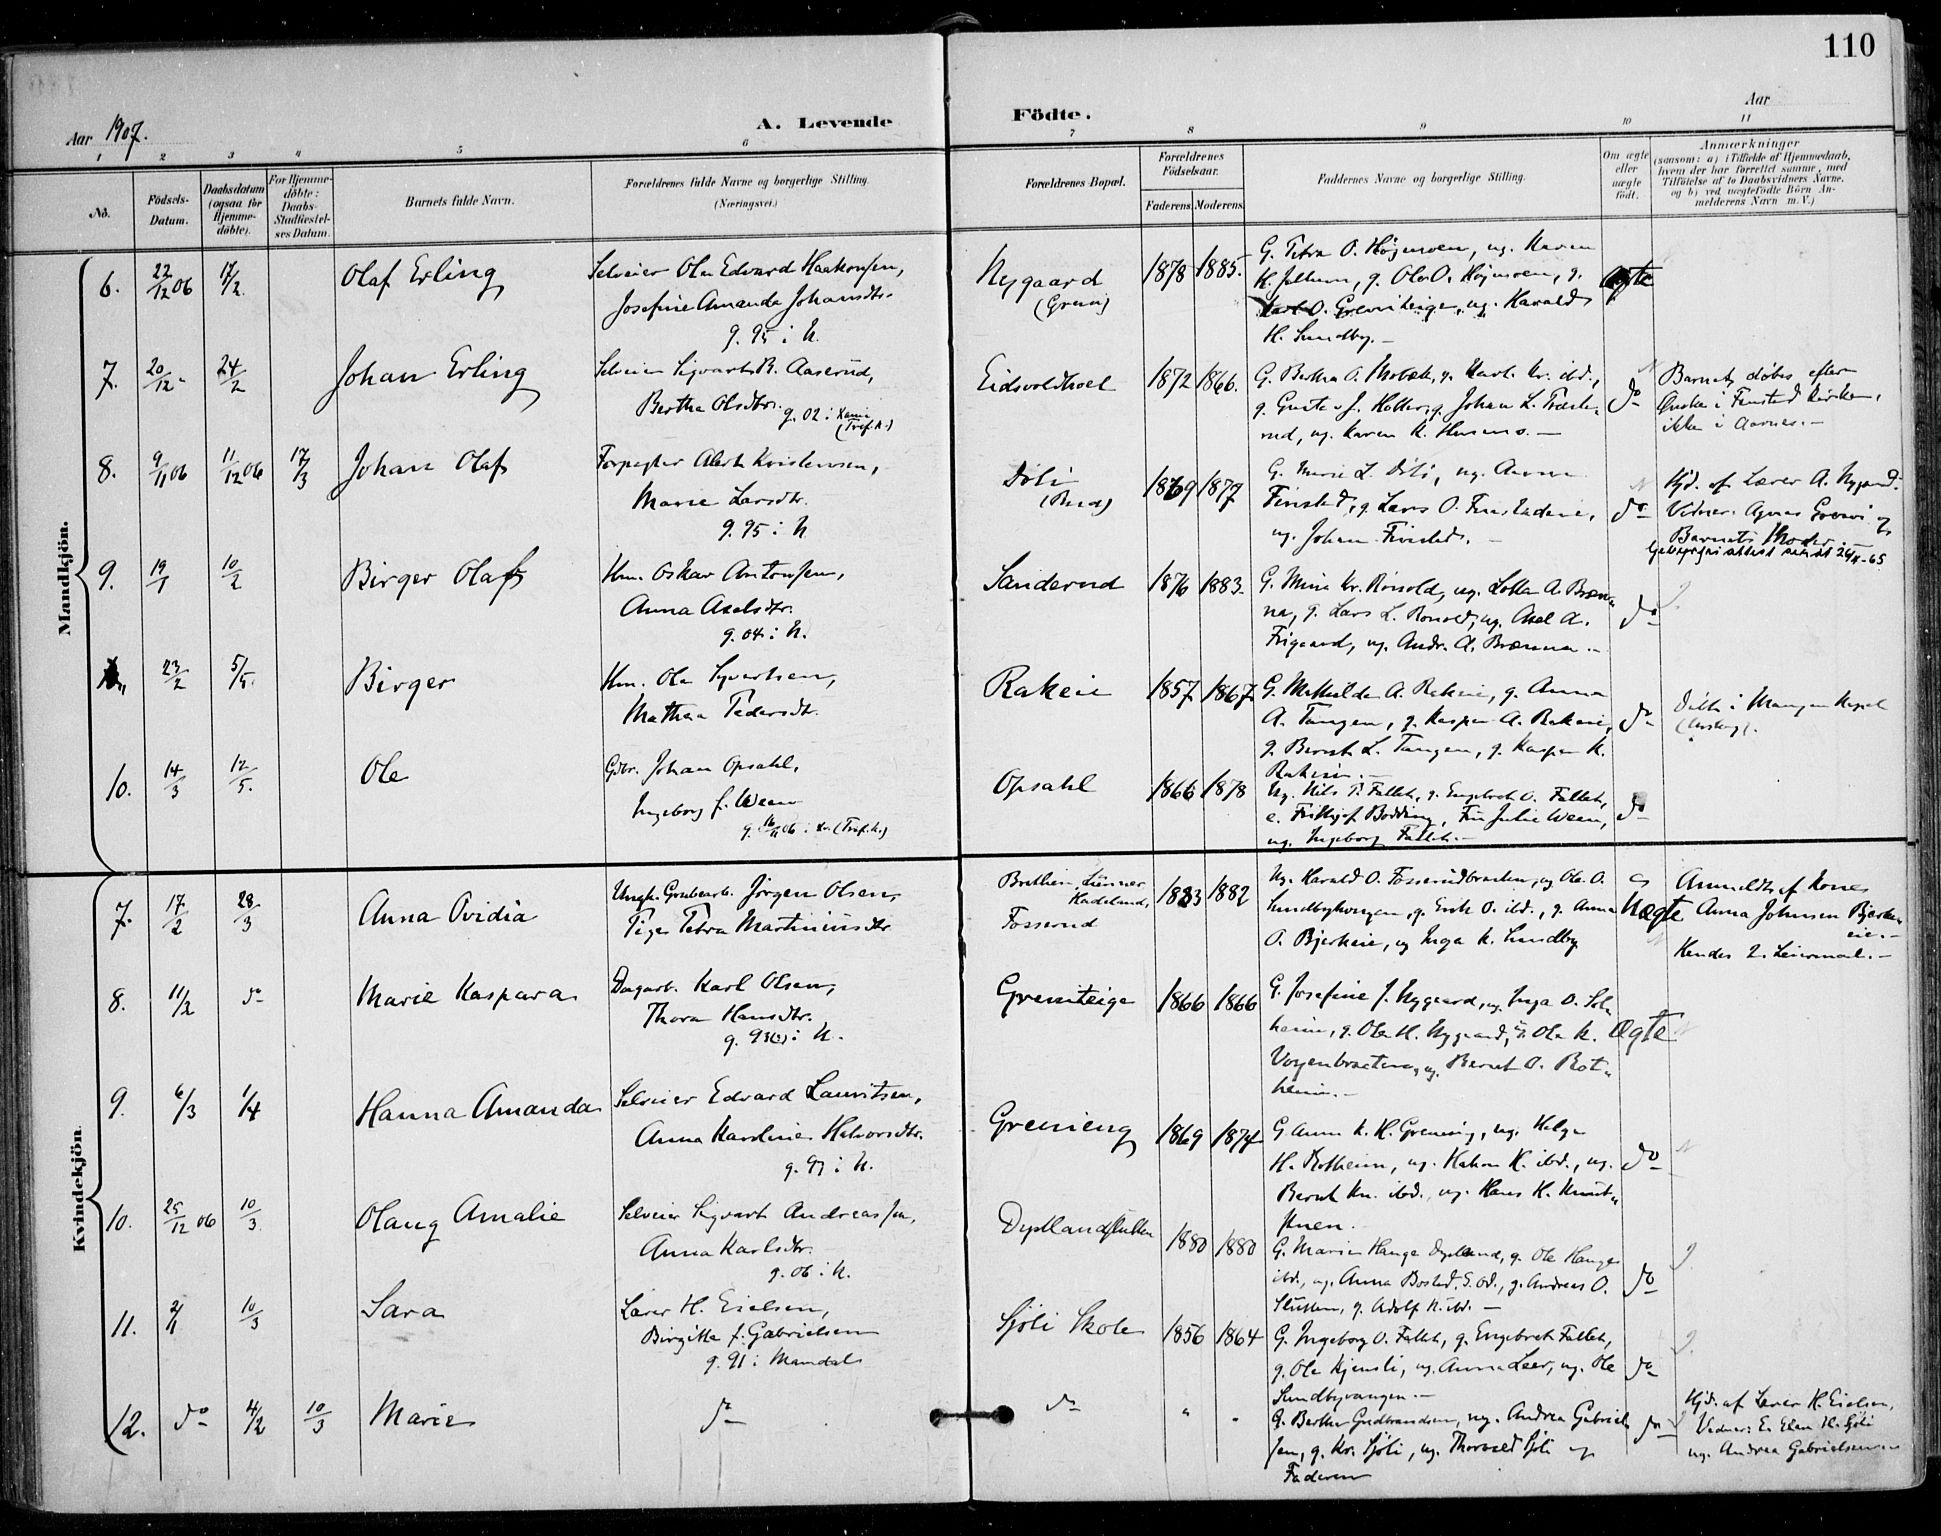 110
Aar 1907.
A. Levende Födte.
Aar
1 2 3 4 5 6 7 8 9 10 11
No.
Födsels-Datum.
Daabsdatum (ogsaa for Hjemme-döbte).
For Hjemme-döbte: Daabs-Stadfæstel-ses Datum.
Barnets fulde Navn.
Forældrenes fulde Navne og borgerlige Stilling. (Næringsvei.)
Forældrenes Bopæl.
Forældrenes Födselsaar.
Faderens. Moderens.
Faddernes Navne og borgerlige Stilling.
Om ægte eller uægte födt.
Anmærkninger
(saasom: a) i Tilfælde af Hjemmedaab,
hvem der har forrettet samme, med
Tilföielse af to Daabsvidners Navne.
og b) ved uægtefödte Börn An-
melderens Navn m. V.)
Mandkjön.
6. 22/12 06 17/2 Olaf Erling
Selveier Ole Edvard Haakonsen,
Josefine Amanda Johansdtr.
g. 95 i N.
Nygaard
(Greni)
1878 1885.
G. Petra O. Højmoen, ug. Karen
K. Julton, g. Ole O. Højmoen, g.
O. Greniteigen, ug. Harald
H. Sundby.-
Ægte
7. 20/12- 24/2 Johan Erling
Selveier Sigvart B. Aaserud,
Bertha Olsdtr.
g. 02 i
(Tref.k.)
Eidsvoldhoel
1872 1866.
G. Bertha O. Molbæk, g. Karl Kr. ibd.,
g. Gustav J. Holter, g. Johan L. Træte-
rud, ug. Karen K. Husmo.-
do
Barnet døbes efter
Ønske i Finstad Kirken,
ikke i Aarnes.-
8. 9/11 06 11/12 06 17/3 Johan Olaf
Forpagter Albert Kristensen,
Marie Larsdtr.
g. 95 i N
Döli
(Brud)
1869 1877
G. Marie L. Döli, ug. Anna
Finstad, g. Lars O. Finstadeie,
ug. Johan Finstad.-
do
Hjd. af Lærer A. Nygaard.
Vidner: Agnes Greni og
Barnets Moder.
attest sendt 24/11-65
9. 19/1 10/2 Birger Olaf
Hm. Oskar Antonsen,
Anna Axelsdtr.
g. 04 i N.
Sanderud
1876 1883.
G. Mina Kr. Rönsold, ug. Lotta A. Bræn-
na, g. Lars L. Ronsold, ug. Axel A.
Frigaard, ug. Andr. A. Brænna.-
do
23/2 5/5. Birger
Hm. Ole Syvertsen,
Mathea Pedersdtr.
Rakeie
1857 1867
G. Mathilde A. Rakeie, g. Anna
A. Tangen, g. Kasper A. Rakeie,
g. Bernt L. Tangen, g. Kasper K.
Rakeie.-
do
Döbt i Mangen Kapel
(Urskog).
10. 14/3 12/5. Ole
Gbr. Johan Opsahl,
Ingeborg f. Ween
g. 16/11 06 i Kr. (Tref.k.)
Opsahl
1866 1878
Ug. Nils P. Fallet, g. Engebret O. Fallet,
e. Fridtjof Bødding, Frk Julie Ween,
ug. Ingeborg Fallet.-
do
Kvindekjön.
7. 17/2 28/3 Anna Ovidia
Ungk. Grubearb. Jörgen Olsen,
Pige Petra Martiniusdtr
Lunner, Hadeland,
Fosserud
1883 1882
Ug. Harald O. Fosserudbraaten, ug. Ole O.
Sundbyvangen, g. Erik O. ibd., g. Anna
O. Bjerkeie, ug Inga K. Sundby
Uægte
Anmeldt af Kone
Anna Johnsen Bjerke-
eie.-
Hendes 2. Leiermaal.-
8. 11/2 do Marie Kaspara
Dagarb. Karl Olsen,
Thora Hansdtr.
g. 93 i N.
Greniteige
1866 1866
G. Josefine J. Nygaard, ug. Inga O. Sol-
heim, g. Ole H. Nygaard, g. Ole K.
Vogenbraaten, ug. Bernt O. Rot-
heim.-
Ægte
9. 6/3 1/4 Hanna Amanda
Selveier Edvard Lauritsen,
Anna Karoline Halvorsdtr.
g. 97 i N.
Grenieng
1869 1874
G. Anna K. H. Grenieng, ug. Helga
H. Rotheim, ug. Hakon H. ibd., ug.
Bernt Kr. ibd., ug. Hans H. Knut-
stuen.
do
10. 25/12 06 10/3 Olaug Amalie
Selveier Sigvart Andreassen,
Anna Karlsdtr.
g. 06 i N.
Dyslandslutten
1880 1880
G. Marie Hauge Dysland, g. Ole Hauge
ibd., ug. Anna Bosted, S. Od., g. Andreas O.
Slutten, g. Adolf K. ibd.-
do
11. 2/1 10/3 Sara
Lærer H. Eielsen,
Birgitte f. Gabrielsen
g. 91 i Mandal
Sjöli Skole
1856 1864
G. Ingeborg O. Fallet, g. Engebret Fallet,
g. Ole Kjensli, ug. Anna Leer, ug. Ole
Sundbyvangen.-
do
12. do 4/2 10/3 Marie
do
do
" "
G. Berthe Gudbrandsen, ug. Andrea Gabriel-
sen, g. Kr. Sjöli, ug. Thorvald Sjöli og
Faderen
do
Hjd. af Lærer H. Eielsen,
Vidner: E. Elen H. Sjöli
ug. Andrea Gabrielsen